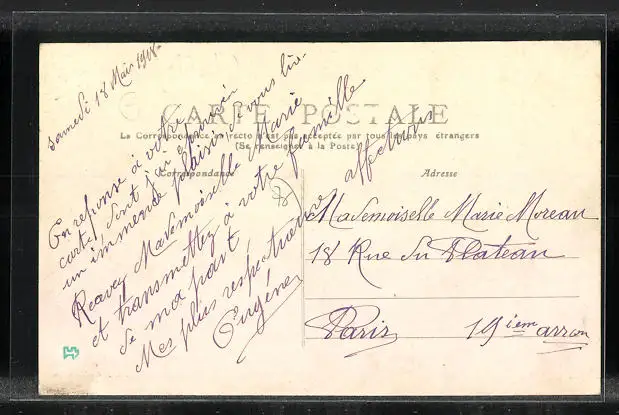 Samedi 18 Mais 1918-
CARTE POSTALE
La Correspondance au recto n'est pas acceptée par tous les pays étrangers
(Se renseigner à la Poste)
Correspondance
Adresse
En reponse à votre
carte, dont j'ai éprouvée
un immense plaisir de vous lire.
Recevez Mademoiselle Marie
et transmettez à votre famille
de ma part,
Mes plus respectueuse affections
Eugène
Mademoiselle Marie Moreau
18 Rue du Plateau
Paris 19ièm arron